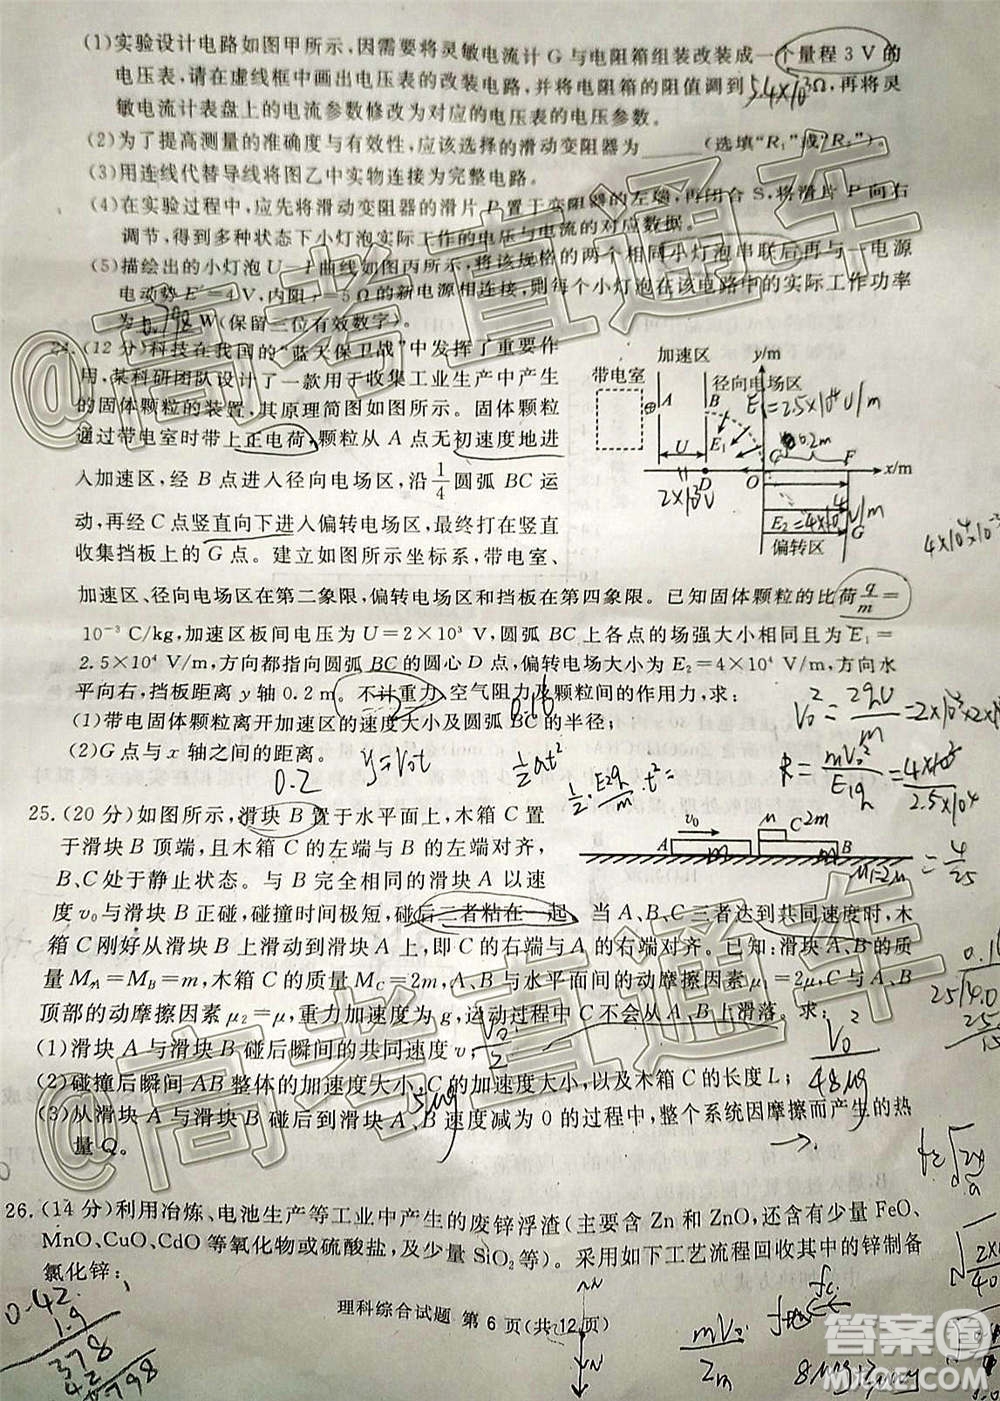 (1)实验设计电路如图甲所示,因需要将灵敏电流计 G 与电阻箱组装改装成一个量程 3 V 的
电压表,请在虚线框中画出电压表的改装电路,并将电阻箱的阻值调到 5.4×10³Ω,再将灵
敏电流计表盘上的电流参数修改为对应的电压表的电压参数。
(2)为了提高测量的准确度与有效性,应该选择的滑动变阻器为____(选填“R₁”或“R₂”)。
(3)用连线代替导线将图乙中实物连接为完整电路。
(4)在实验过程中,应先将滑动变阻器的滑片 P 置于变阻器的左端,再闭合 S,将滑片 P 向右
调节,得到多种状态下小灯泡实际工作的电压与电流的对应数据。
(5)描绘出的小灯泡 U-I 曲线如图丙所示,将该规格的两个相同小灯泡串联后再与一电源
电动势 E=4 V,内阻 r=5 Ω 的新电源相连接,则每个小灯泡在该电路中的实际工作功率
为 0.798 W(保留三位有效数字)。
24.(12 分)科技在我国的“蓝天保卫战”中发挥了重要作
用,某科研团队设计了一款用于收集工业生产中产生
的固体颗粒的装置,其原理简图如图所示。固体颗粒
通过带电室时带上正电荷,颗粒从 A 点无初速度地进
入加速区,经 B 点进入径向电场区,沿 1/4 圆弧 BC 运
动,再经 C 点竖直向下进入偏转电场区,最终打在竖直
收集挡板上的 G 点。建立如图所示坐标系,带电室、
加速区 y/m
带电室 A B 径向电场区
E₁=2.5×10⁴V/m
U E₁ 0.2m
C F x/m
D O
2×10³V
E₂ 4×10⁴V/m
偏转区 G
4×10⁴×10⁻³
加速区、径向电场区在第二象限,偏转电场区和挡板在第四象限。已知固体颗粒的比荷 q/m =
10⁻³ C/kg,加速区板间电压为 U=2×10³ V,圆弧 BC 上各点的场强大小相同且为 E₁=
2.5×10⁴ V/m,方向都指向圆弧 BC 的圆心 D 点,偏转电场场强大小为 E₂=4×10⁴ V/m,方向水
平向右,挡板距离 y 轴 0.2 m。不计重力、空气阻力及颗粒间的作用力,求:
(1)带电固体颗粒离开加速区的速度大小及圆弧 BC 的半径;
0.16
(2)G 点与 x 轴之间的距离。
0.2 y=V₀t
25.(20 分)如图所示,滑块 B 置于水平面上,木箱 C 置
于滑块 B 顶端,且木箱 C 的左端与 B 的左端对齐,
B、C 处于静止状态。与 B 完全相同的滑块 A 以速
v₀ C 2m
A m m B
μ₁=2μ
度 v₀ 与滑块 B 正碰,碰撞时间极短,碰后二者粘在一起。当 A、B、C 三者达到共同速度时,木
箱 C 刚好从滑块 B 上滑动到滑块 A 上,即 C 的右端与 A 的右端对齐。已知:滑块 A、B 的质
量 M_A=M_B=m,木箱 C 的质量 M_C=2m,A、B 与水平面间的动摩擦因素 μ₁=2μ,C 与 A、B
顶部的动摩擦因素 μ₂=μ,重力加速度为 g,运动过程中 C 不会从 AB 上滑落。求:
(1)滑块 A 与滑块 B 碰后瞬间的共同速度 v;
(2)碰撞后瞬间 AB 整体的加速度大小,以及木箱 C 的长度 L;
(3)从滑块 A 与滑块 B 碰后到滑块 A 与滑块 B 速度减为 0 的过程中,整个系统因摩擦而产生的热
量 Q。
26.(14 分)利用冶炼、电池生产等工业中产生的废锌浮渣(主要含 Zn 和 ZnO,还含有少量 FeO、
MnO、CuO、CdO 等氧化物或硫酸盐,及少量 SiO₂ 等)。采用如下工艺流程回收其中的锌制备
氯化锌:
理科综合试题 第 6 页(共 12 页)
@高考直通车
@高考直通车
答案圈
MXQE.COM